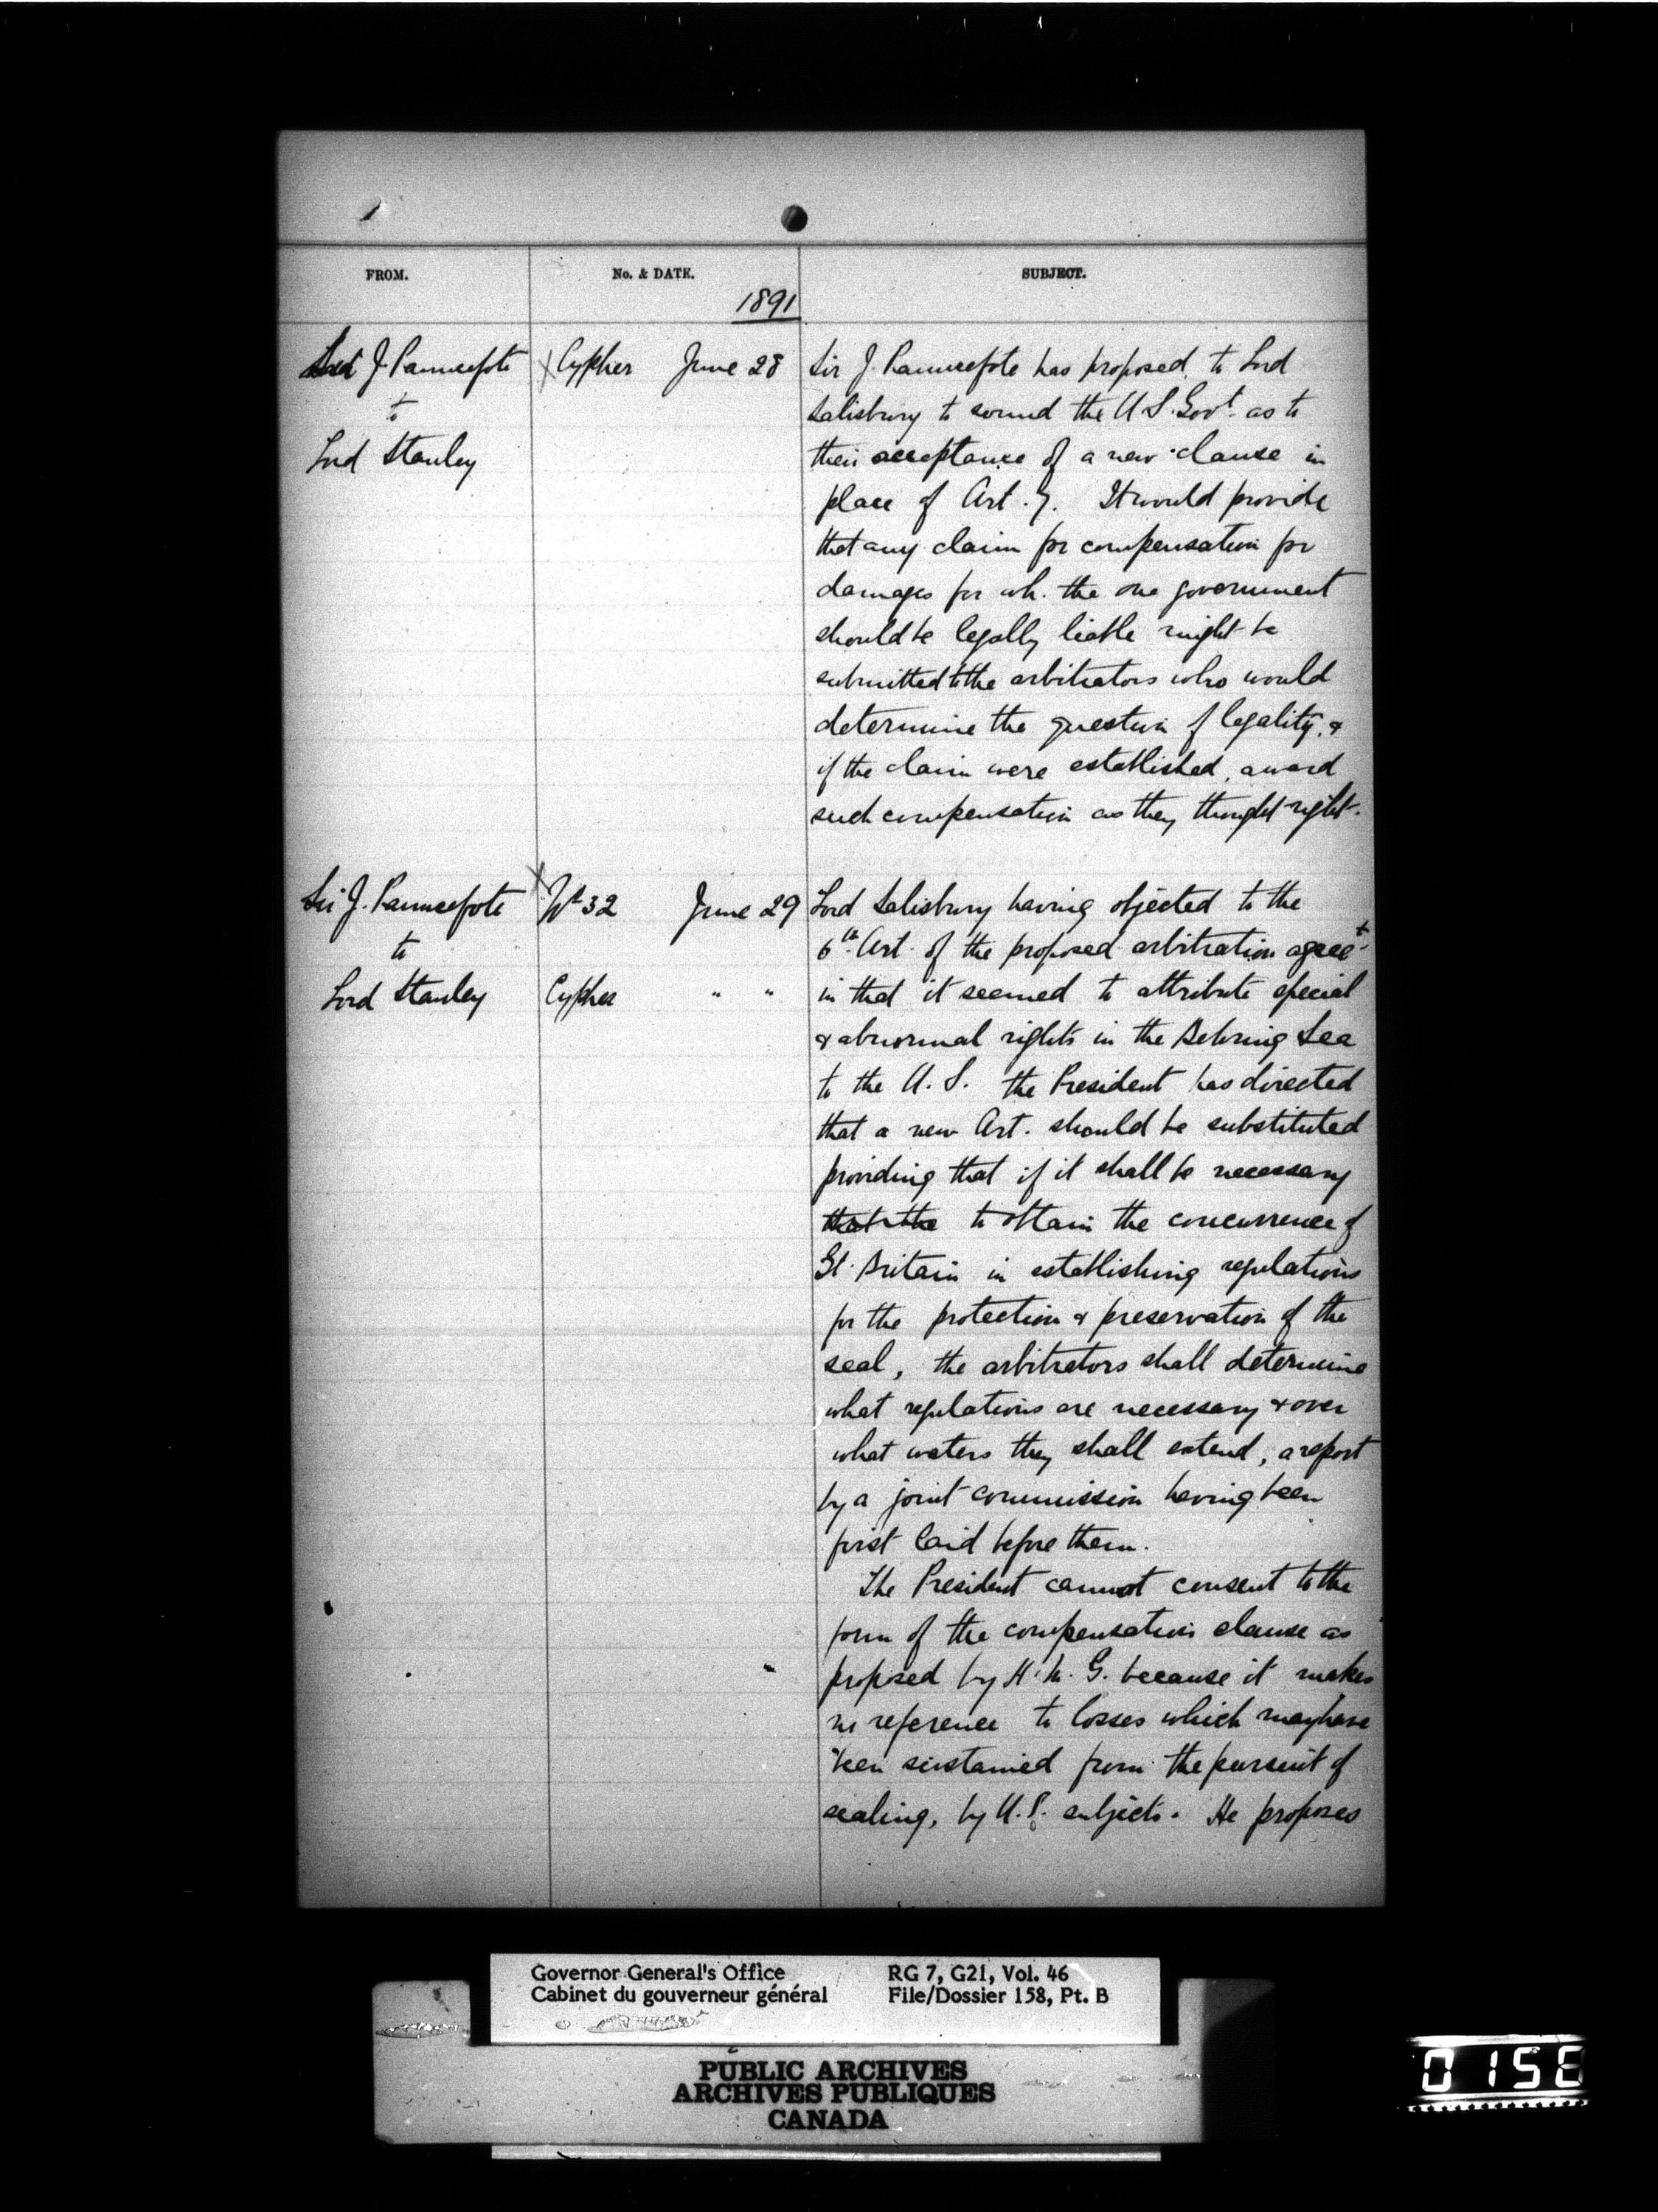 FROM. No. & DATE. SUBJECT.
1891
J. Pauncefote Cypher June 28 Sir J. Pauncefote has proposed to Lord
to Salisbury to sound the U.S. Govt. as to
Lord Stanley their acceptance of a new clause in
place of Art. 7. It would provide
that any claim for compensation for
damages for wh. the one government
should be legally liable might be
submitted to the arbitrators who would
determine the question of legality, &
if the claim were established, award
such compensation as they thought right.
Sir J. Pauncefote No 32 June 29 Lord Salisbury having objected to the
to 6th Art. of the proposed arbitration agreet.
Lord Stanley Cypher " " in that it seemed to attribute special
& abnormal rights in the Behring Sea
to the U.S. the President has directed
that a new Art. should be substituted
providing that if it shall be necessary
that the to obtain the concurrence of
Gt. Britain in establishing regulations
for the protection & preservation of the
seal, the arbitrators shall determine
what regulations are necessary & over
what waters they shall extend, a report
by a joint commission having been
first laid before them.
The President cannot consent to the
form of the compensation clause as
proposed by H. M. G. because it makes
no reference to losses which may have
been sustained from the pursuit of
sealing, by U.S. subjects. He proposes
Governor General's Office RG 7, G21, Vol. 46
Cabinet du gouverneur général File/Dossier 158, Pt. B
PUBLIC ARCHIVES
ARCHIVES PUBLIQUES
CANADA